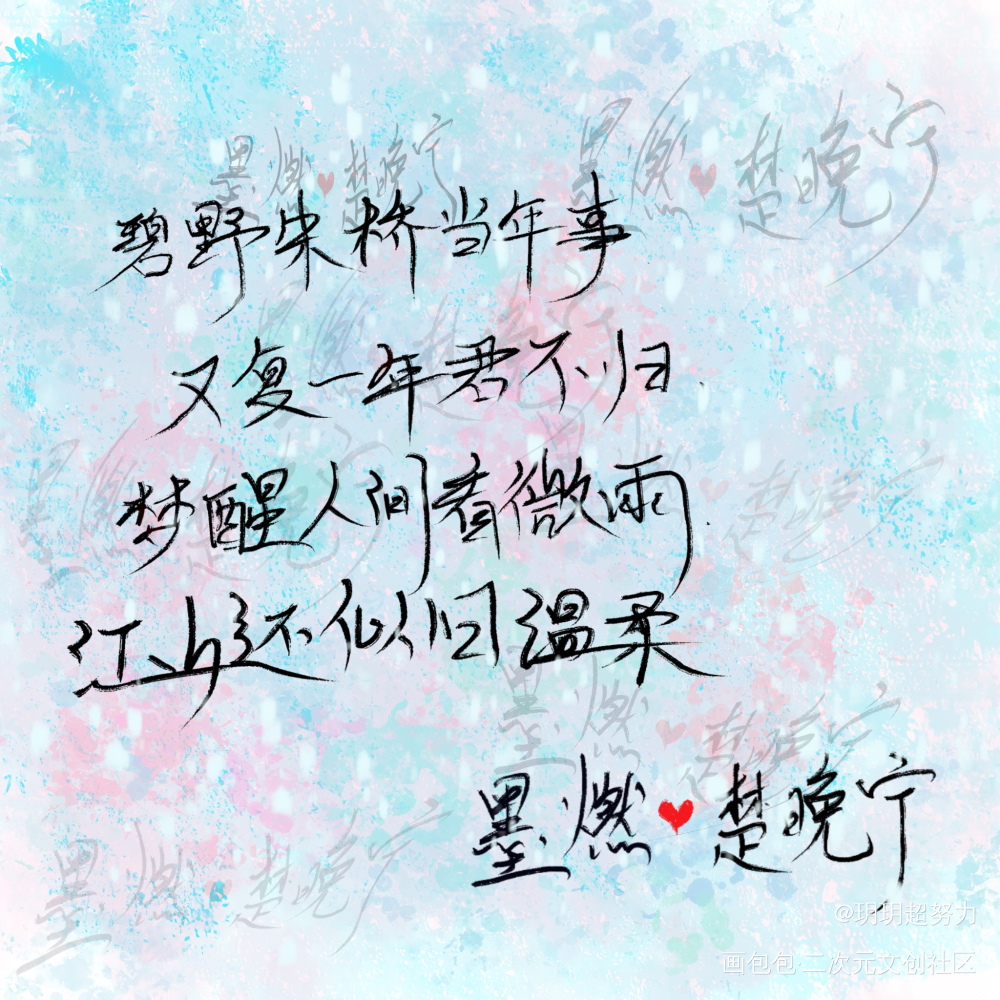 墨燃❤楚晚宁
墨燃❤楚晚宁
碧野朱桥当年事
又复一年君不归
梦醒人间看微雨
江山还似旧温柔
墨燃❤楚晚宁
墨燃❤楚晚宁
墨燃❤楚晚宁
墨燃❤楚晚宁
墨燃❤楚晚宁
墨燃❤楚晚宁
@玥玥超努力
画包包 二次元文创社区